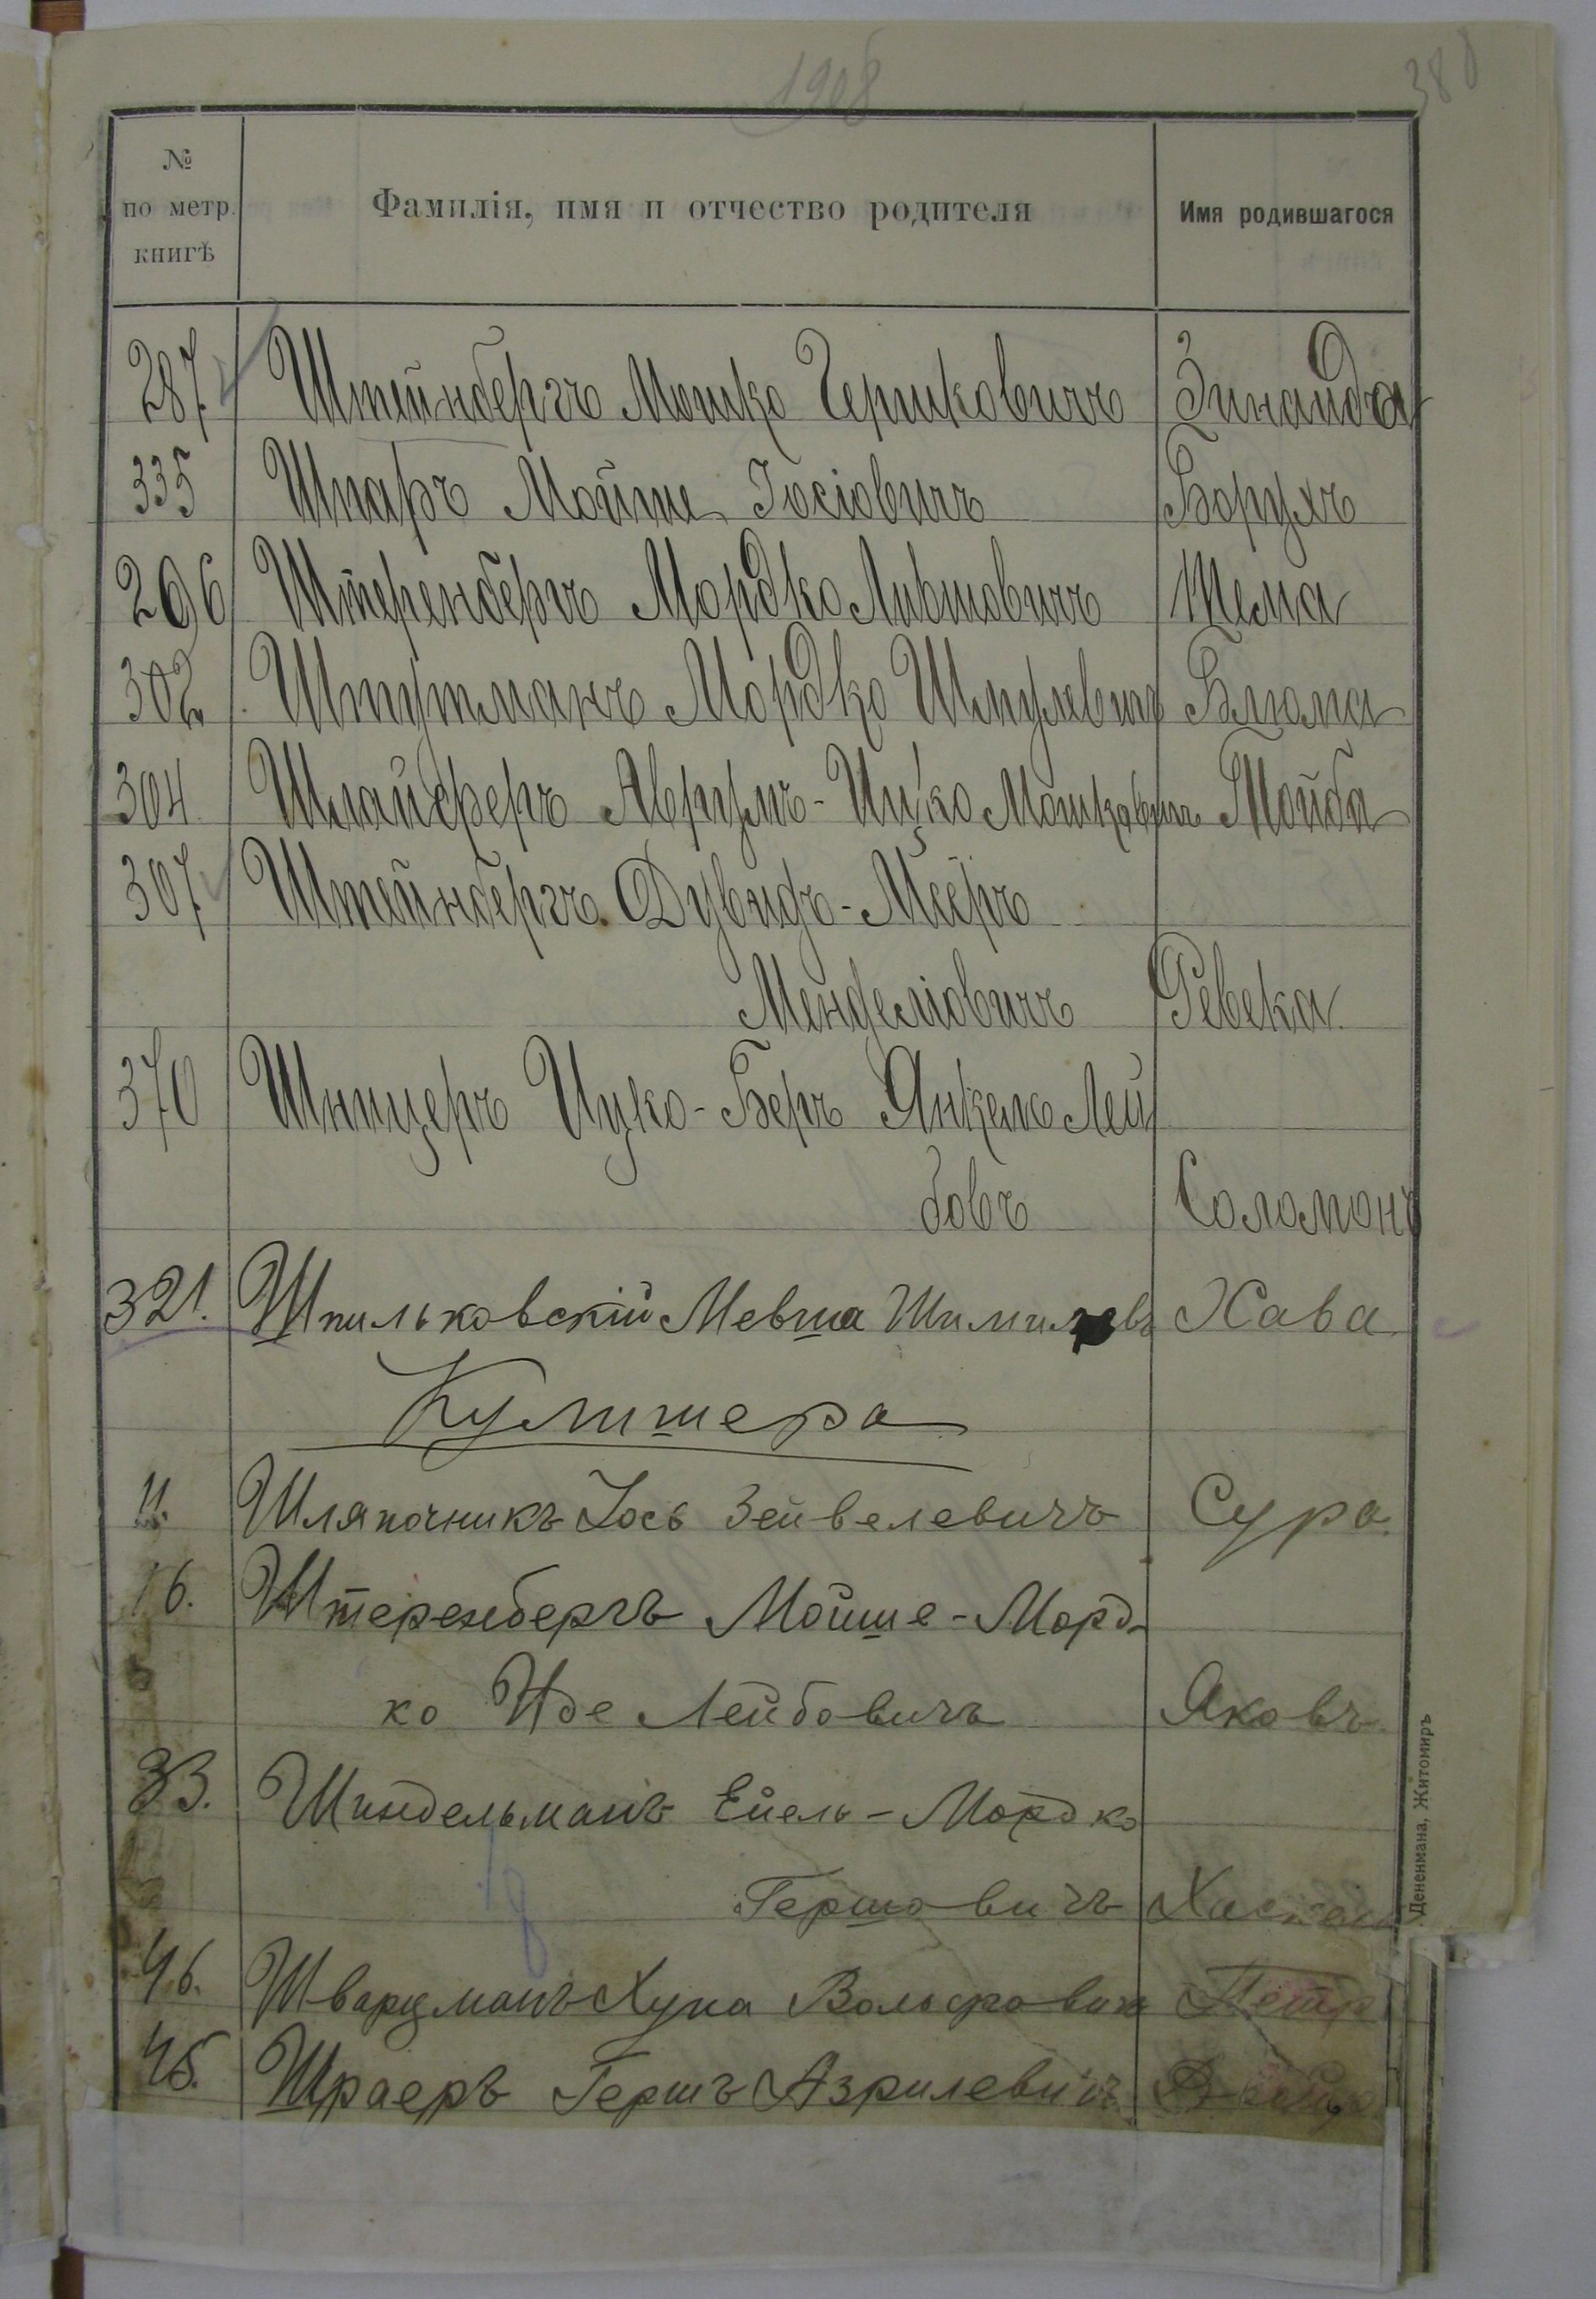 1908
388
№ по метр. книгѣ
Фамилія, имя и отчество родителя
Имя родившагося
287. Штейнбергъ Мошко Гершковичъ Зинаида
335 Шпаръ Мойше Іосіовичъ Борухъ
296 Штеренбергъ Мордко Лившовичъ Шема
302. Штутманъ Мордко Шмулевичъ Блюма
304 Шлайферъ Аврумъ-Ицко Мошковичъ Тойба
307. Штейнбергъ Дувидъ-Меёръ
Менделіовичъ Ревека
370 Шницеръ Ицко-Беръ Янкель Лей
бовъ Соломонъ
321. Шпильковскій Мевша Шмилевъ Хава
Кулишера
11. Шляпочникъ Іось Зейвелевичъ Сура
16. Штеренбергъ Мойше-Морд-
ко Иде Лейбовичъ Яковъ
33. Шиндельманъ Ейель-Мордко
Гершовичъ
46. Шварцманъ Хуна Вольфовичъ Петръ
45. Шраеръ Гершъ Азрилевичъ
Дененмана, Житомиръ